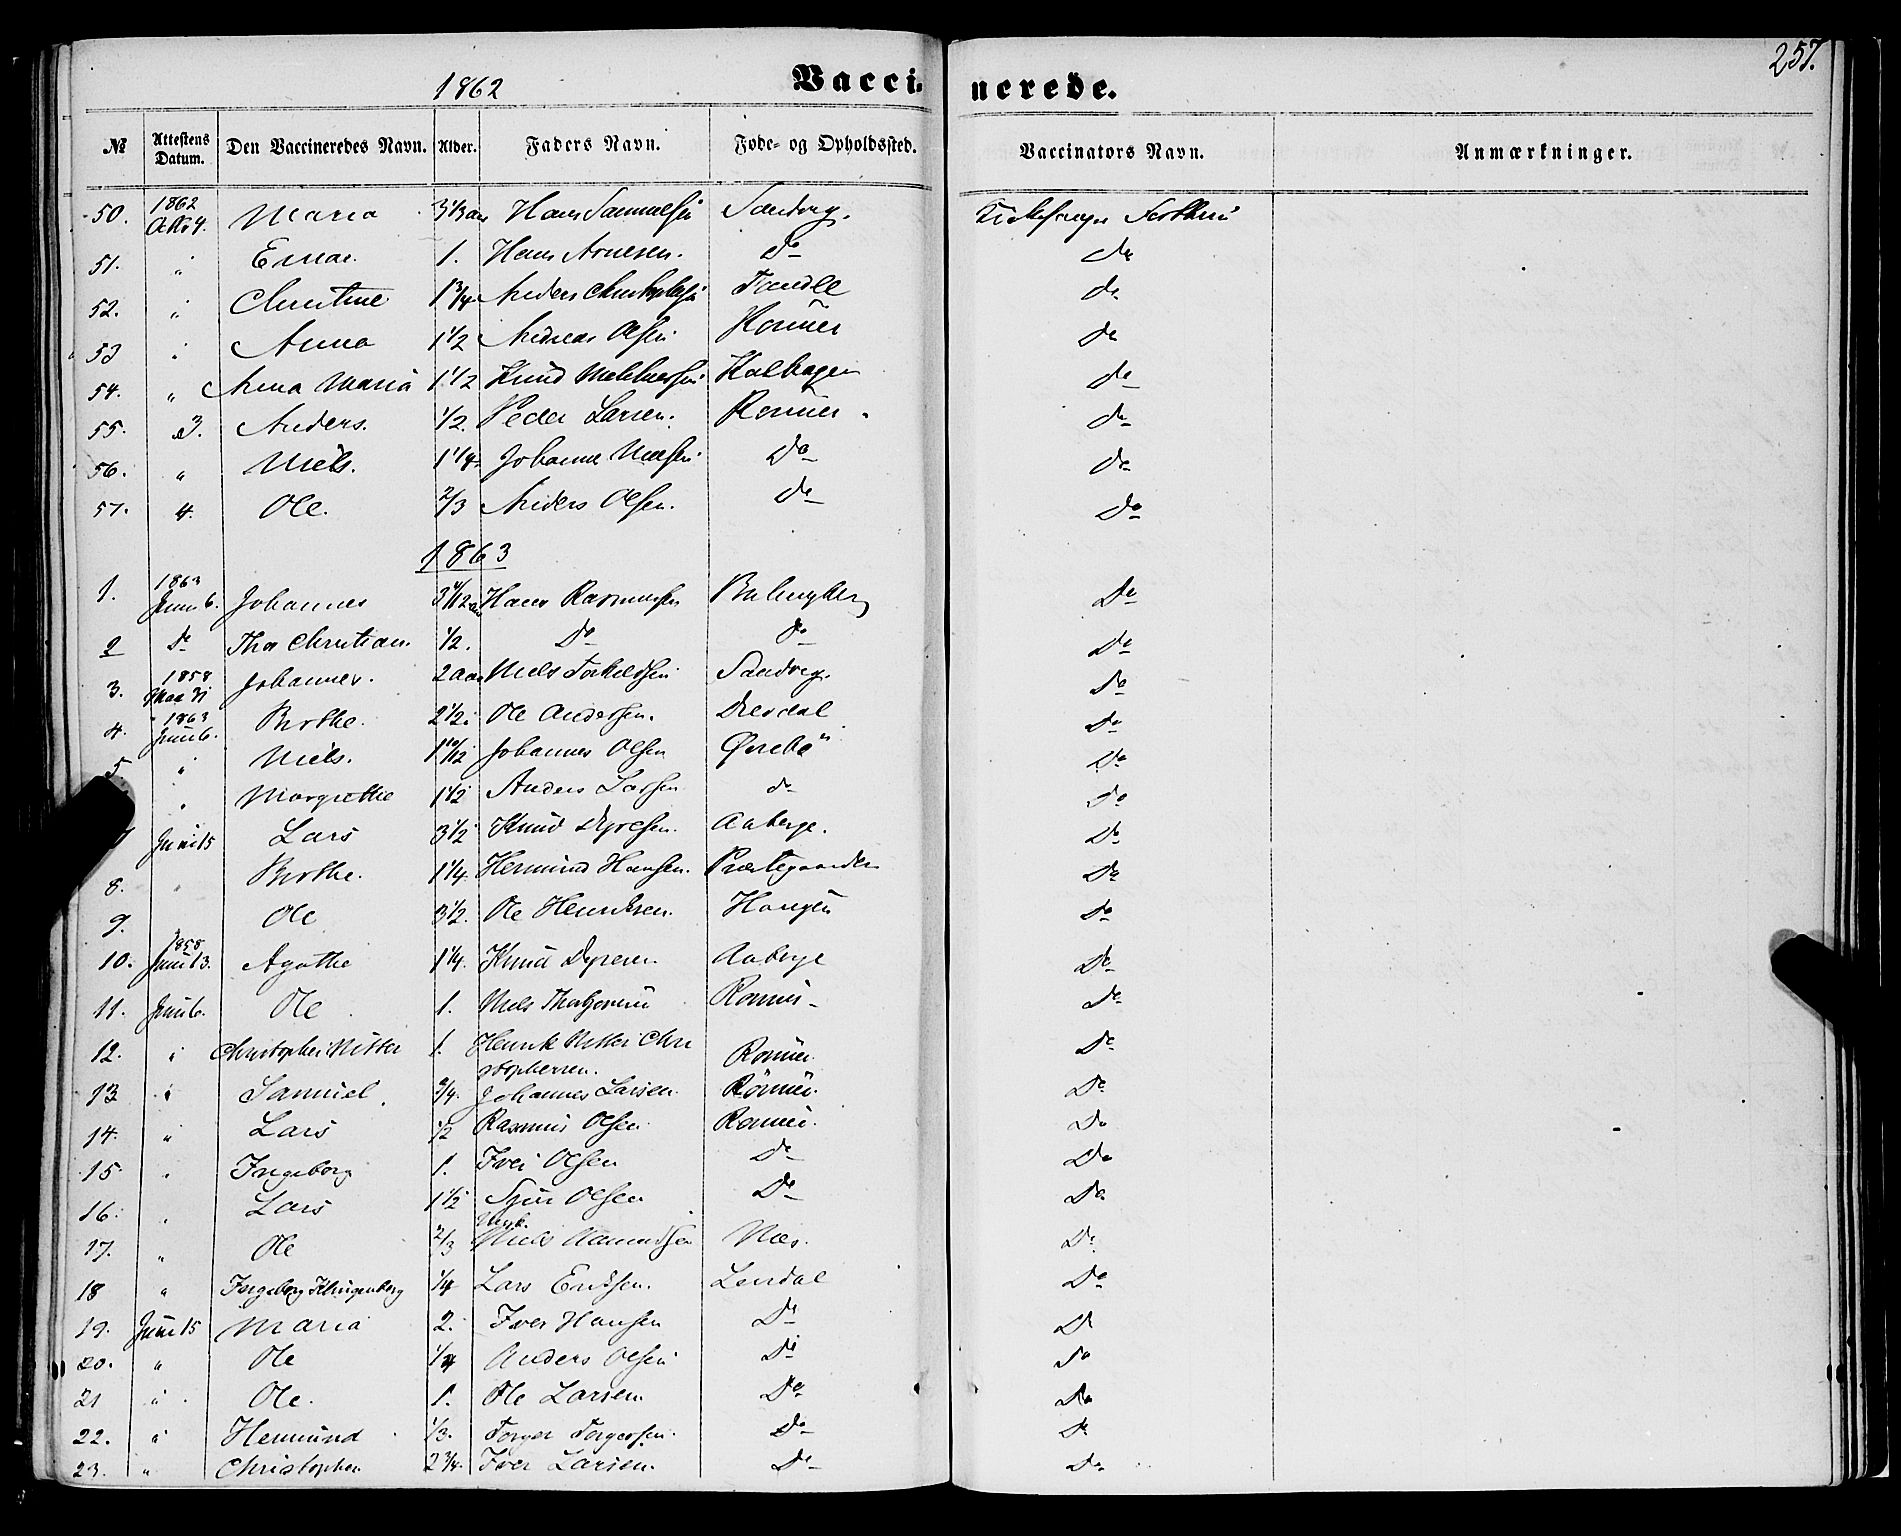 257.
1862 Vaccinerede.
№ Attestens Datum. Den Vaccineredes Navn. Alder. Faders Navn. Føde- og Opholdssted. Vaccinators Navn. Anmærkninger.
50. 1862 Octbr 4. Maria 3 1/3 aar Hans Samuelsen Sandvig.
51. " 1. Hans Arnesen. Do Do
52. " Christine 1 3/4 Anders Christophersen Do
53 " Anna 1 1/2 Andreas Olsen Ronnei Do
54. " Anna Maria 1 1/2 Knud Do
55. 3. Anders. 1/2. Peder Larsen. Ronnei. Do
56. " Niels. 1 1/4 Johannes Do Do
57. 4. Ole. 2/3 Anders Olsen. Do Do
1863
1. 1863 Juni 6. Johannes Hans Rasmussen Do
2 Do Thor Christian. 1/2. Do Do Do
3. 1858 Johannes. 2 aar Niels Torkeldsen Sandvig. Do
4. 1863 Juni 6. Birthe. 2 1/2 Ole Andersen. Do
5 " Niels. 1 10/12 Johannes Olsen Do
" Margrethe 1 1/2 Anders Larsen Do Do
Juni 15 Lars 3 1/2 Knud Aaberge. Do
8. " Birthe. 1 1/4. Hermund Hansen. Præstegaarden Do
9. " Ole 3 1/2. Ole Henriksen. Haugen Do
10. 1858 Juni 13. Agathe 1 1/4. Knud Aaberge Do
11. Juni 6. Ole 1. Niels Ronnei Do
12. " Christopher Nitter 1. Henrik Nitter Christophersen. Ronnei. Do
13 " Samuel 3/4. Johannes Larsen. Ronnei. Do
14. " Lars 1/2 Rasmus Olsen Ronnei. Do
15. " Ingeborg 1. Iver Olsen Do Do
16. " Lars 1 1/2 Sjur Olsen Do Do
17. " Ole 2/3 Niels Aamundsen Næs. Do
18 " Ingeborg Klingenberg 1/4 Lars Eriksen. Lerdal Do
19. Juni 15 Maria 2. Iver Hansen Do Do
20. " Ole 1/4 Anders Olsen Do Do
21 " Ole. 1. Ole Larsen Do Do
22. " Hermund 1/3. Torger Torgersen. Do Do
23. " Christopher 2 3/4. Iver Larsen. Do Do